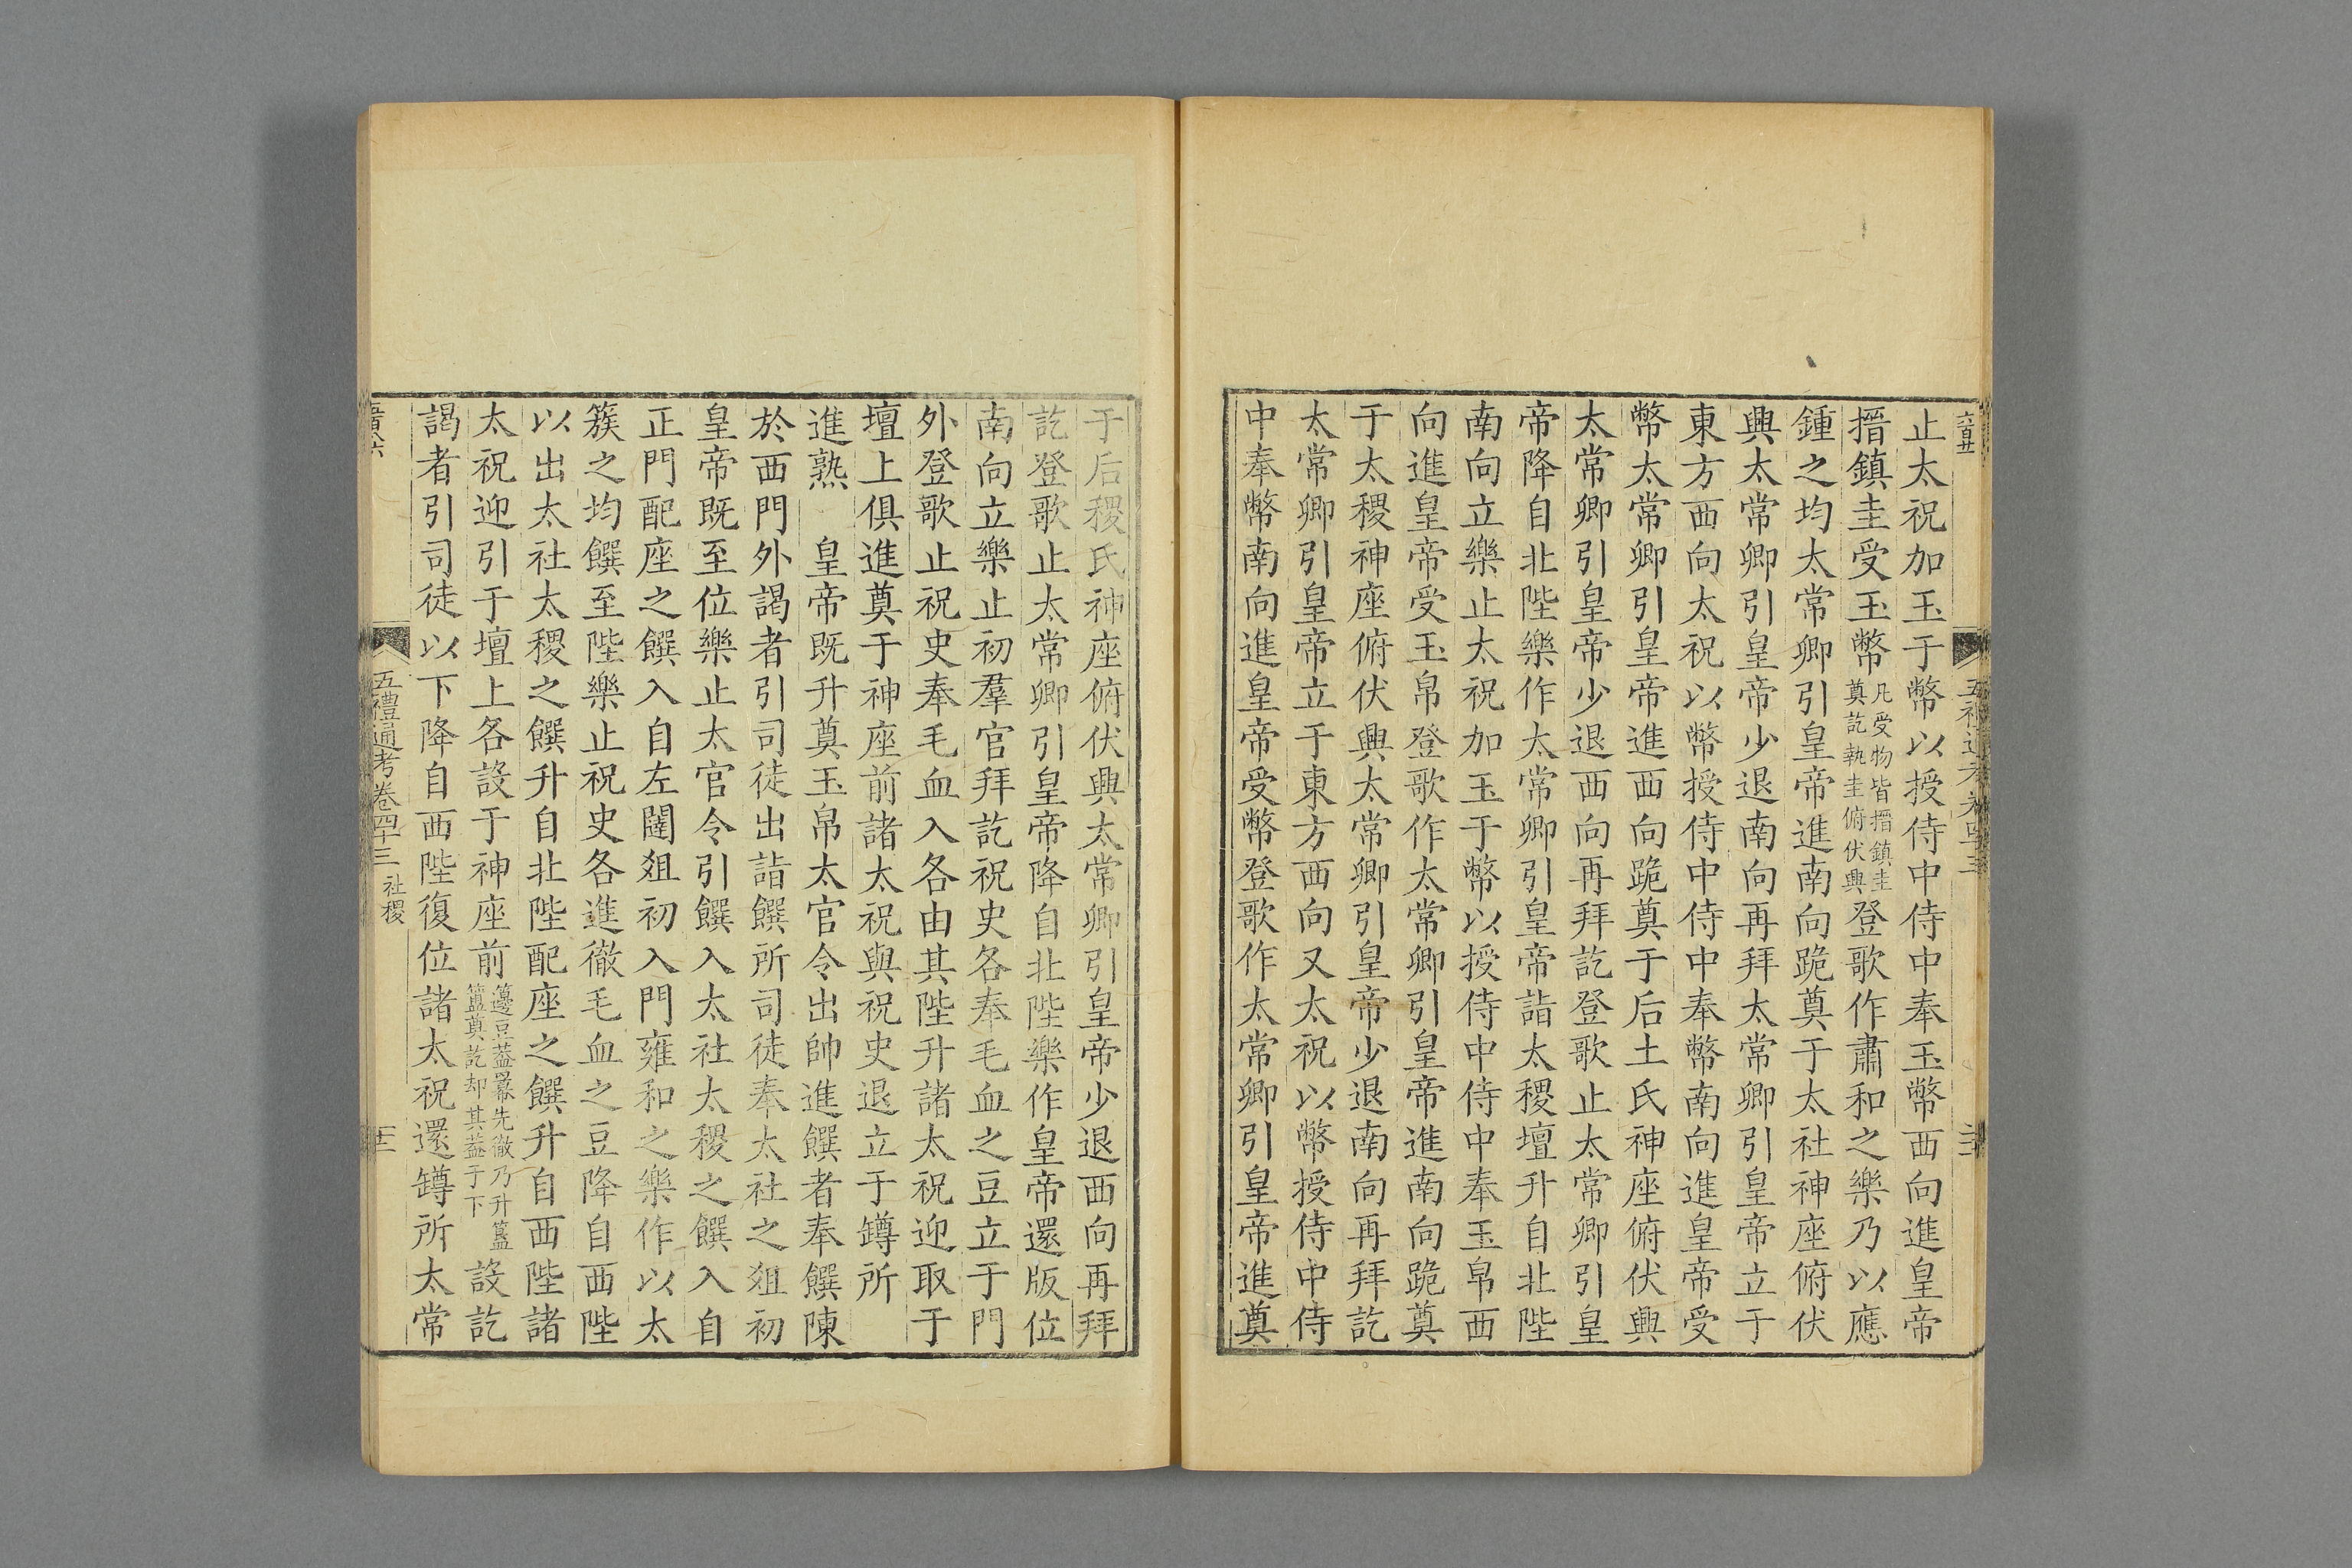 止太祝加玉于幣以授侍中侍中奉玉幣西向進皇帝
搢鎮圭受玉幣凡受物皆搢鎮圭奠訖執圭俯伏興登歌作肅和之樂乃以應
鍾之均太常卿引皇帝進南向跪奠于太社神座俯伏
興太常卿引皇帝少退南向再拜太常卿引皇帝立于
東方西向太祝以幣授侍中侍中奉幣南向進皇帝受
幣太常卿引皇帝進西向跪奠于后土氏神座俯伏興
太常卿引皇帝少退西向再拜訖登歌止太常卿引皇
帝降自北陛樂作太常卿引皇帝詣太稷壇升自北陛
南向立樂止太祝加玉于幣以授侍中侍中奉玉帛西
向進皇帝受玉帛登歌作太常卿引皇帝進南向跪奠
于太稷神座俯伏興太常卿引皇帝少退南向再拜訖
太常卿引皇帝立于東方西向又太祝以幣授侍中侍
中奉幣南向進皇帝受幣登歌作太常卿引皇帝進奠
于后稷氏神座俯伏興太常卿引皇帝少退西向再拜
訖登歌止太常卿引皇帝降自北陛樂作皇帝還版位
南向立樂止初羣官拜訖祝史各奉毛血之豆立于門
外登歌止祝史奉毛血入各由其陛升諸太祝迎取于
壇上俱進奠于神座前諸太祝與祝史退立于罇所
進熟　皇帝既升奠玉帛太官令出帥進饌者奉饌陳
於西門外謁者引司徒出詣饌所司徒奉太社之俎初
皇帝既至位樂止太官令引饌入太社太稷之饌入自
正門配座之饌入自左闥俎初入門雍和之樂作以太
簇之均饌至陛樂止祝史各進徹毛血之豆降自西陛
以出太社太稷之饌升自北陛配座之饌升自西陛諸
太祝迎引于壇上各設于神座前籩豆蓋羃先徹乃升簠簋奠訖却其蓋于下設訖
謁者引司徒以下降自西陛復位諸太祝還罇所太常
五禮通考卷四十三 社稷